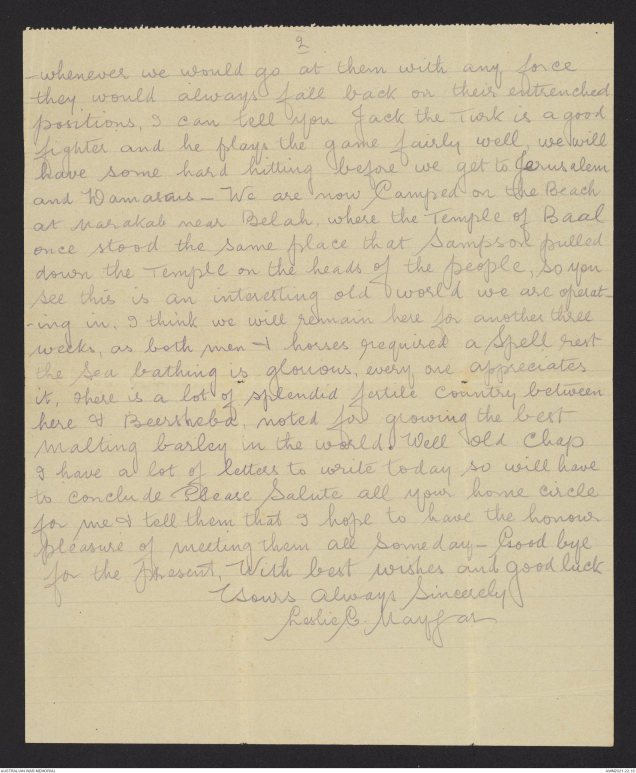 2
-whenever we would go at them with any force
they would always fall back on their entrenched
positions, I can tell you Jack the Turk is a good
fighter and he plays the game fairly well, we will
have some hard hitting before we get to Jerusalem
and Damascus - We are now Camped on the Beach
at Marakab near Belah, where the Temple of Baal
once stood the same place that Sampson pulled
down the Temple on the heads of the people, so you
see this is an interesting old world we are operat-
-ing in. I think we will remain here for another three
weeks, as both men & horses required a Spell rest
the Sea bathing is glorious, every one appreciates
it, there is a lot of splendid fertile Country between
here & Beersheba, noted for growing the best
Malting barley in the world. Well old Chap
I have a lot of letters to write today so will have
to conclude Please Salute all your home circle
for me & tell them that I hope to have the honour
pleasure of meeting them all Someday - Good bye
for the present, With best wishes and good luck
Yours always Sincerely
Leslie C. Maygar
AUSTRALIAN WAR MEMORIAL